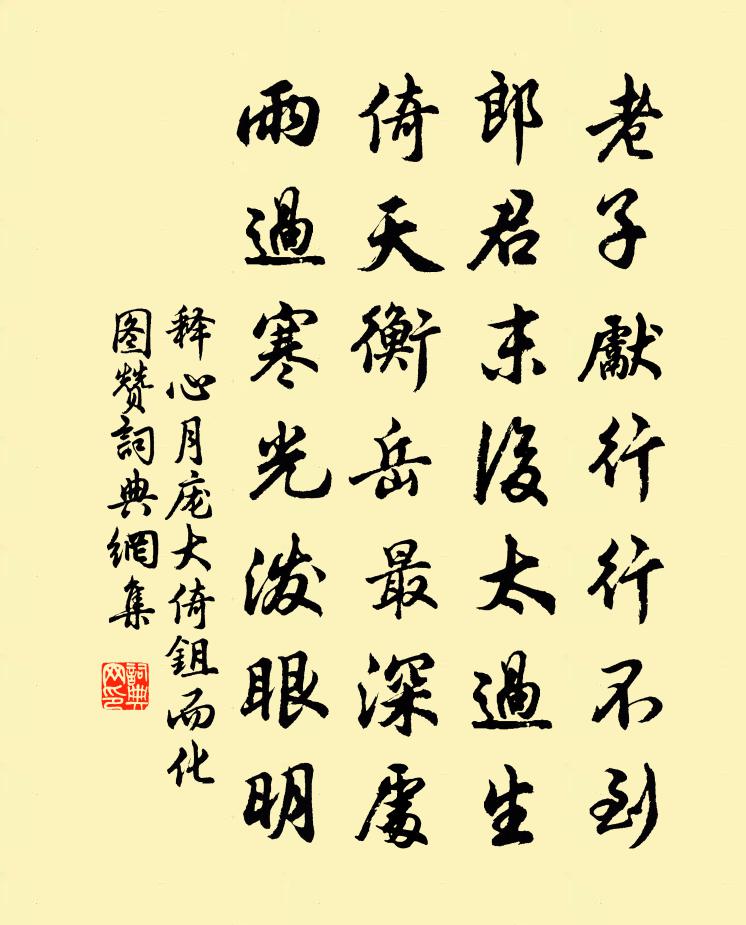 老子獻行行不到
郎君末後太過生
倚天衡岳最深處
雨過寒光潑眼明
释心月庞大倚鉏而化
图赞詞典網集
詞典網印